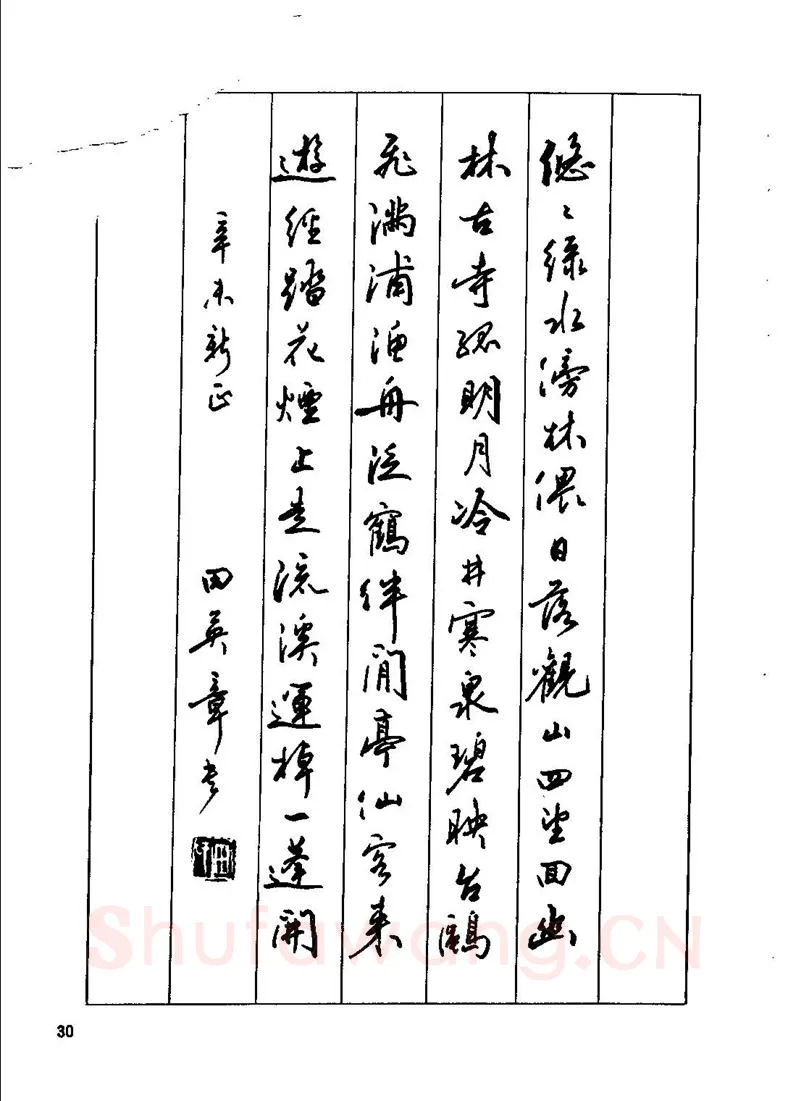 悠〻绿水傍林偎日落觀山四望回幽
林古寺孤明月冷井寒泉碧映台鷗
飛滿浦漁舟泛鶴伴閒亭仙客来
遊徑踏花煙上走流溪運棹一蓬開
辛未新正 田英章书
Shufawang.CN
30